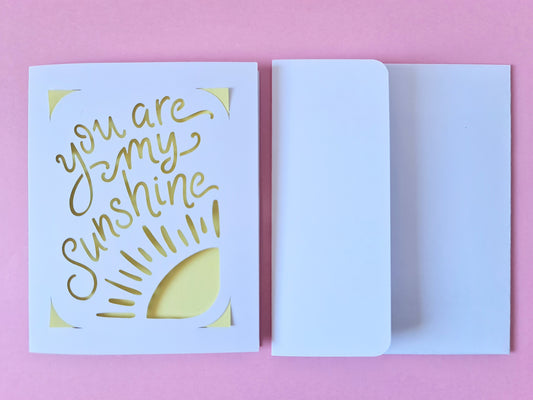 you are
my
sunshine